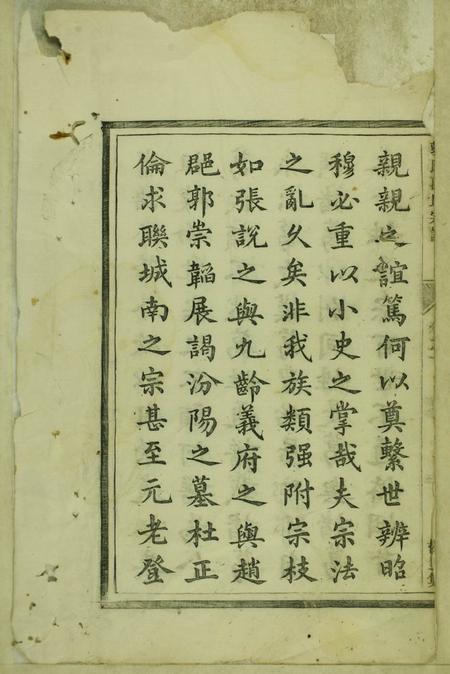 親親之誼篤何以奠繫世辨昭
穆必重以小史之掌哉夫宗法
之亂久矣非我族類强附宗枝
如張說之與九齡義府之與趙
郡郭崇韜展謁汾陽之墓杜正
倫求聯城南之宗甚至元老登